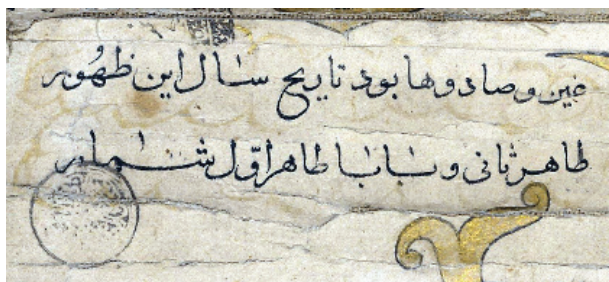 غین و صاد و ها بود تاریخ سال این ظهُور
طاهر ثانی و بابا طاهر اوّل شمار